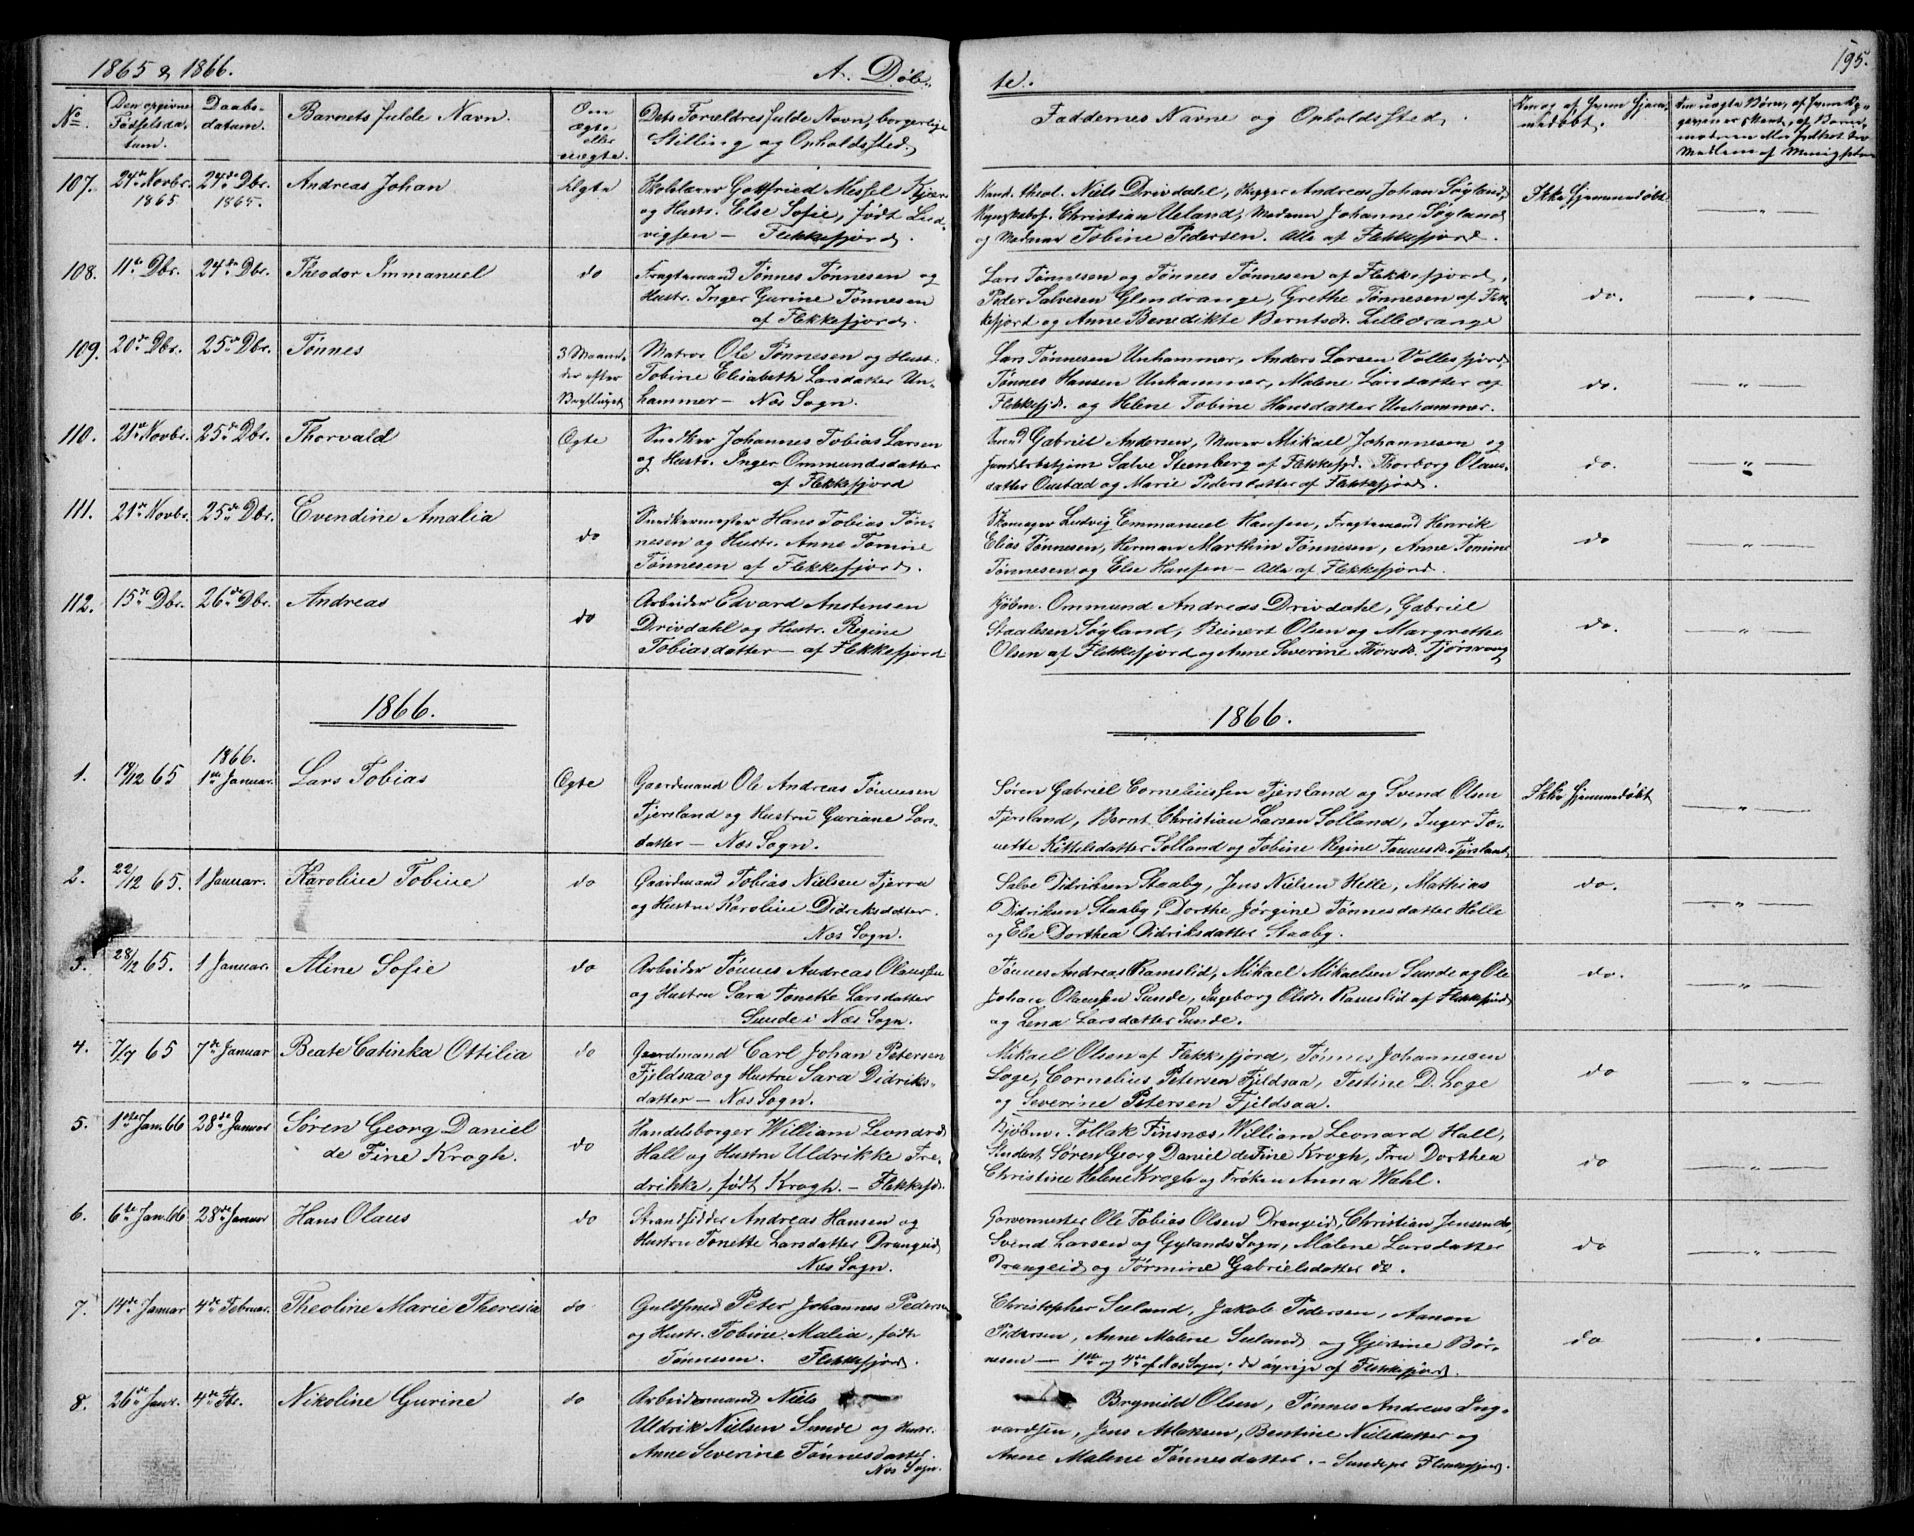 1865 & 1866.
A. Døb-
te.
195.
No
Den opgivne Fødselsda- tum.
Daabs- datum.
Barnets fulde Navn.
Om ægte eller uægte.
Dets Forældres fulde Navn, borgerlige Stilling og Opholdssted.
Faddernes Navne og Opholdssted.
107. 24de Novbr. 1865 24de Dbr. 1865. Andreas Johan Ægte
Skolelærer Gottfried Messel Kjær
og Hustr. Else Sofie, født Lud-
vigsen — Flekkefjord.
Kand. theol. Niels Drivdahl, Skipper Andreas Johan Søgland,
Christian Ueland, Madame Johanne Søgland
og Madame Tobine Pedersen. Alle af Flekkefjord.
Ikke hjemmedøbt — " —
108. 11te Dbr. 24de Dbr. Theodor Immanuel do
Fragtemand Tønnes Tønnesen og
Hustr. Inger Gurine Tønnesen
af Flekkefjord.
Lars Tønnesen og Tønnes Tønnesen af Flekkefjord,
Peder Salvesen Glendrange, Grethe Tønnesen af Flek-
kefjord og Anne Benedikte Berntsdr. Lilledrange
do. — " —
109. 20de Dbr. 25de Dbr. Tønnes 3 Maane- der efter Brylluppet
Matros Ole Tønnesen og Hust.
Tobine Elisabeth Larsdatter Un-
hammer — Næs Sogn.
Lars Tønnesen Unhammer, Anders Larsen Vollesfjord,
Tønnes Hansen Unhammer, Malene Larsdatter af
Flekkefjd. og Helene Tobine Hansdatter Unhammer.
do. — " —
110. 21de Novbr. 25de Dbr. Thorvald Ægte
Snedker Johannes Tobias Larsen
og Hustr. Inger Ommundsdatter
af Flekkefjord
Smed Gabriel Andersen, Murer Mikael Johannesen og
Salve Steenberg af Flekkefjd. Thorborg Olaus-
datter Oustad og Marie Pedersdatter af Flekkefjord.
do. — " —
111. 21de Novbr. 25de Dbr. Evendine Amalia do
Snedkermester Hans Tobias Tøn-
nesen og Hustr. Anne Tomine
Tønnesen af Flekkefjord.
Skomager Ludvig Emmanuel Hansen, Fragtemand Henrik
Elias Tønnesen, Herman Marthin Tønnesen, Anne Tomine
Tønnesen og Else Hansen — Alle af Flekkefjord.
do — " —
112. 15de Dbr. 26de Dbr. Andreas do
Arbeider Edvard Anstensen
Drivdahl og Hustr. Regine
Tobiasdatter — af Flekkefjord
Kjøbm. Ommund Andreas Drivdahl, Gabriel
Staalesen Søgland, Reinert Olsen og Margrethe
Olsen af Flekkefjord og Anne Severine Thorsdr. Tjørsvaag
do. — " —
1866.
1866.
1. 18/12 65 1866. 1ste Januar. Lars Tobias Ægte
Gaardmand Ole Andreas Tønnesen
Fjersland og Hustru Guriane Lars-
datter — Næs Sogn.
Søren Gabriel Corneliussen Fjersland og Svend Olsen
Fjersland, Bernt Christian Larsen Solland, Inger To-
nette Kittelsdatter Solland og Tobine Regine Tønnesdr. Fjersland
Ikke hjemmedøbt — " —
2. 22/12 65. 1 Januar. Karoline Tobine do
Gaardmand Tobias Nielsen Tjerru
og Hustru Karoline Didriksdatter.
Næs Sogn.
Salve Didriksen Staaby, Jens Nielsen Helle, Mathias
Didriksen Staaby, Dorthe Jørgine Tønnesdatter Helle
og Else Dorthea Didriksdatter Staaby.
do. — " —
3. 28/12 65. 1 Januar. Aline Sofie do
Arbeider Tønnes Andreas Olaussen
og Hustru Sara Tonette Larsdatter
Sunde i Næs Sogn.
Tønnes Andreas Ramslid, Mikael Mikaelsen Sunde og Ole
Johan Olaussen Sunde, Ingeborg Olsdr. Ramslid af Flekkefjord
og Lena Larsdatter Sunde.
do. — " —
4. 7/7 65 7de Januar Beate Catinka Ottilia do
Gaardmand Carl Johan Petersen
Fjeldsaa og Hustru Sara Didriks-
datter — Næs Sogn.
Mikael Olsen af Flekkefjord, Tønnes Johannesen
Loge, Cornelius Petersen Fjeldsaa, Testine D. Loge
og Severine Petersen Fjeldsaa.
do — " —
5. 1ste Jan. 66 28de Januar Søren Georg Daniel
de Fine Krogh. do
Handelsborger William Leonard
Hall og Hustru Uldrikke Fre-
drikke, født Krogh. — Flekkefjd.
Kjøbm. Tollak Finsnæs, William Leonard Hall,
Student Søren Georg Daniel de Fine Krogh, Fru Dorthea
Christine Helene Krogh og Frøken Anna Wahl.
do — " —
6. 6te Jan. 66 28de Januar Hans Olaus do
Strandsidder Andreas Hansen og
Hustru Tonette Larsdatter Drangeid
Næs Sogn.
Garvermester Ole Tobias Olsen Drangeid, Christian Jensen do,
Svend Larsen og Gylands Sogn, Malene Larsdatter
Drangeid og Tørmine Gabrielsdatter do.
do — " —
7. 14de Januar 4de Februar. Theoline Marie Theresia do
Guldsmed Peter Johannes Pedersen
og Hustr. Tobine Malia, født
Tønnesen. Flekkefjord.
Christopher Seeland, Jakob Pedersen, Aanon
Pedersen, Anne Malene Seeland og Gjertine Bør-
nesen — 1ste og 4de af Næs Sogn, de øvrige af Flekkefjord.
do — " —
8. 26de Janr. 4de Fbr. Nikoline Gurine do
Arbeidsmand Niels
Uldrik Nielsen Sunde og Hustr.
Anne Severine Tønnesdatter
Næs Sogn.
Brynild Olsen, Tønnes Andreas Ing-
vardsen, Jens Atlaksen, Bertine Nielsdatter og
Anne Malene Tønnesdatter. — Sunde pr Flekkefjord.